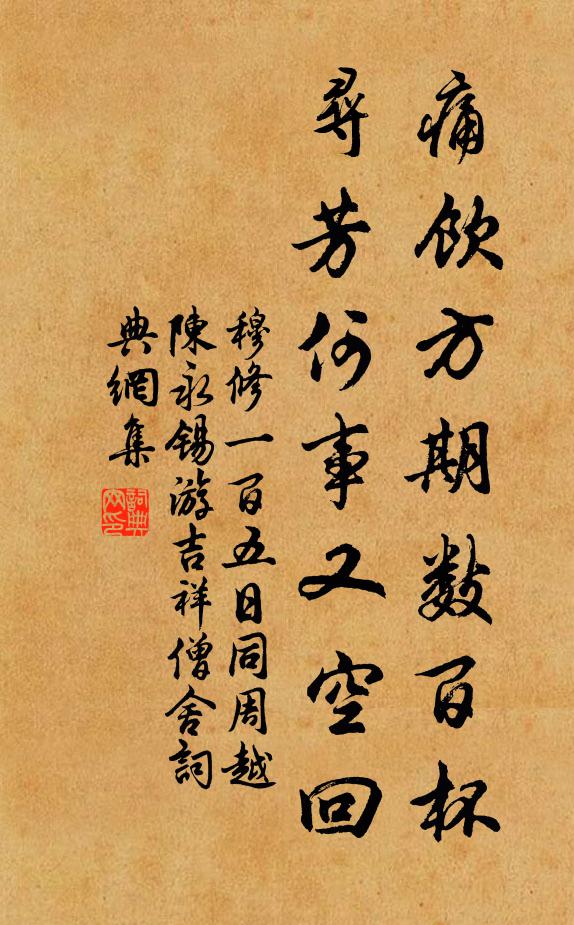 痛飲方期數百杯
尋芳何事又空回
穆修一百五日同周越
陳永錫游吉祥僧舍詞
典網集
詞典網印